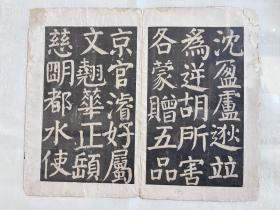 沈盈盧逖並
為逆胡所害
各蒙贈五品
京官濬好屬
文翹華正
慈明都水使